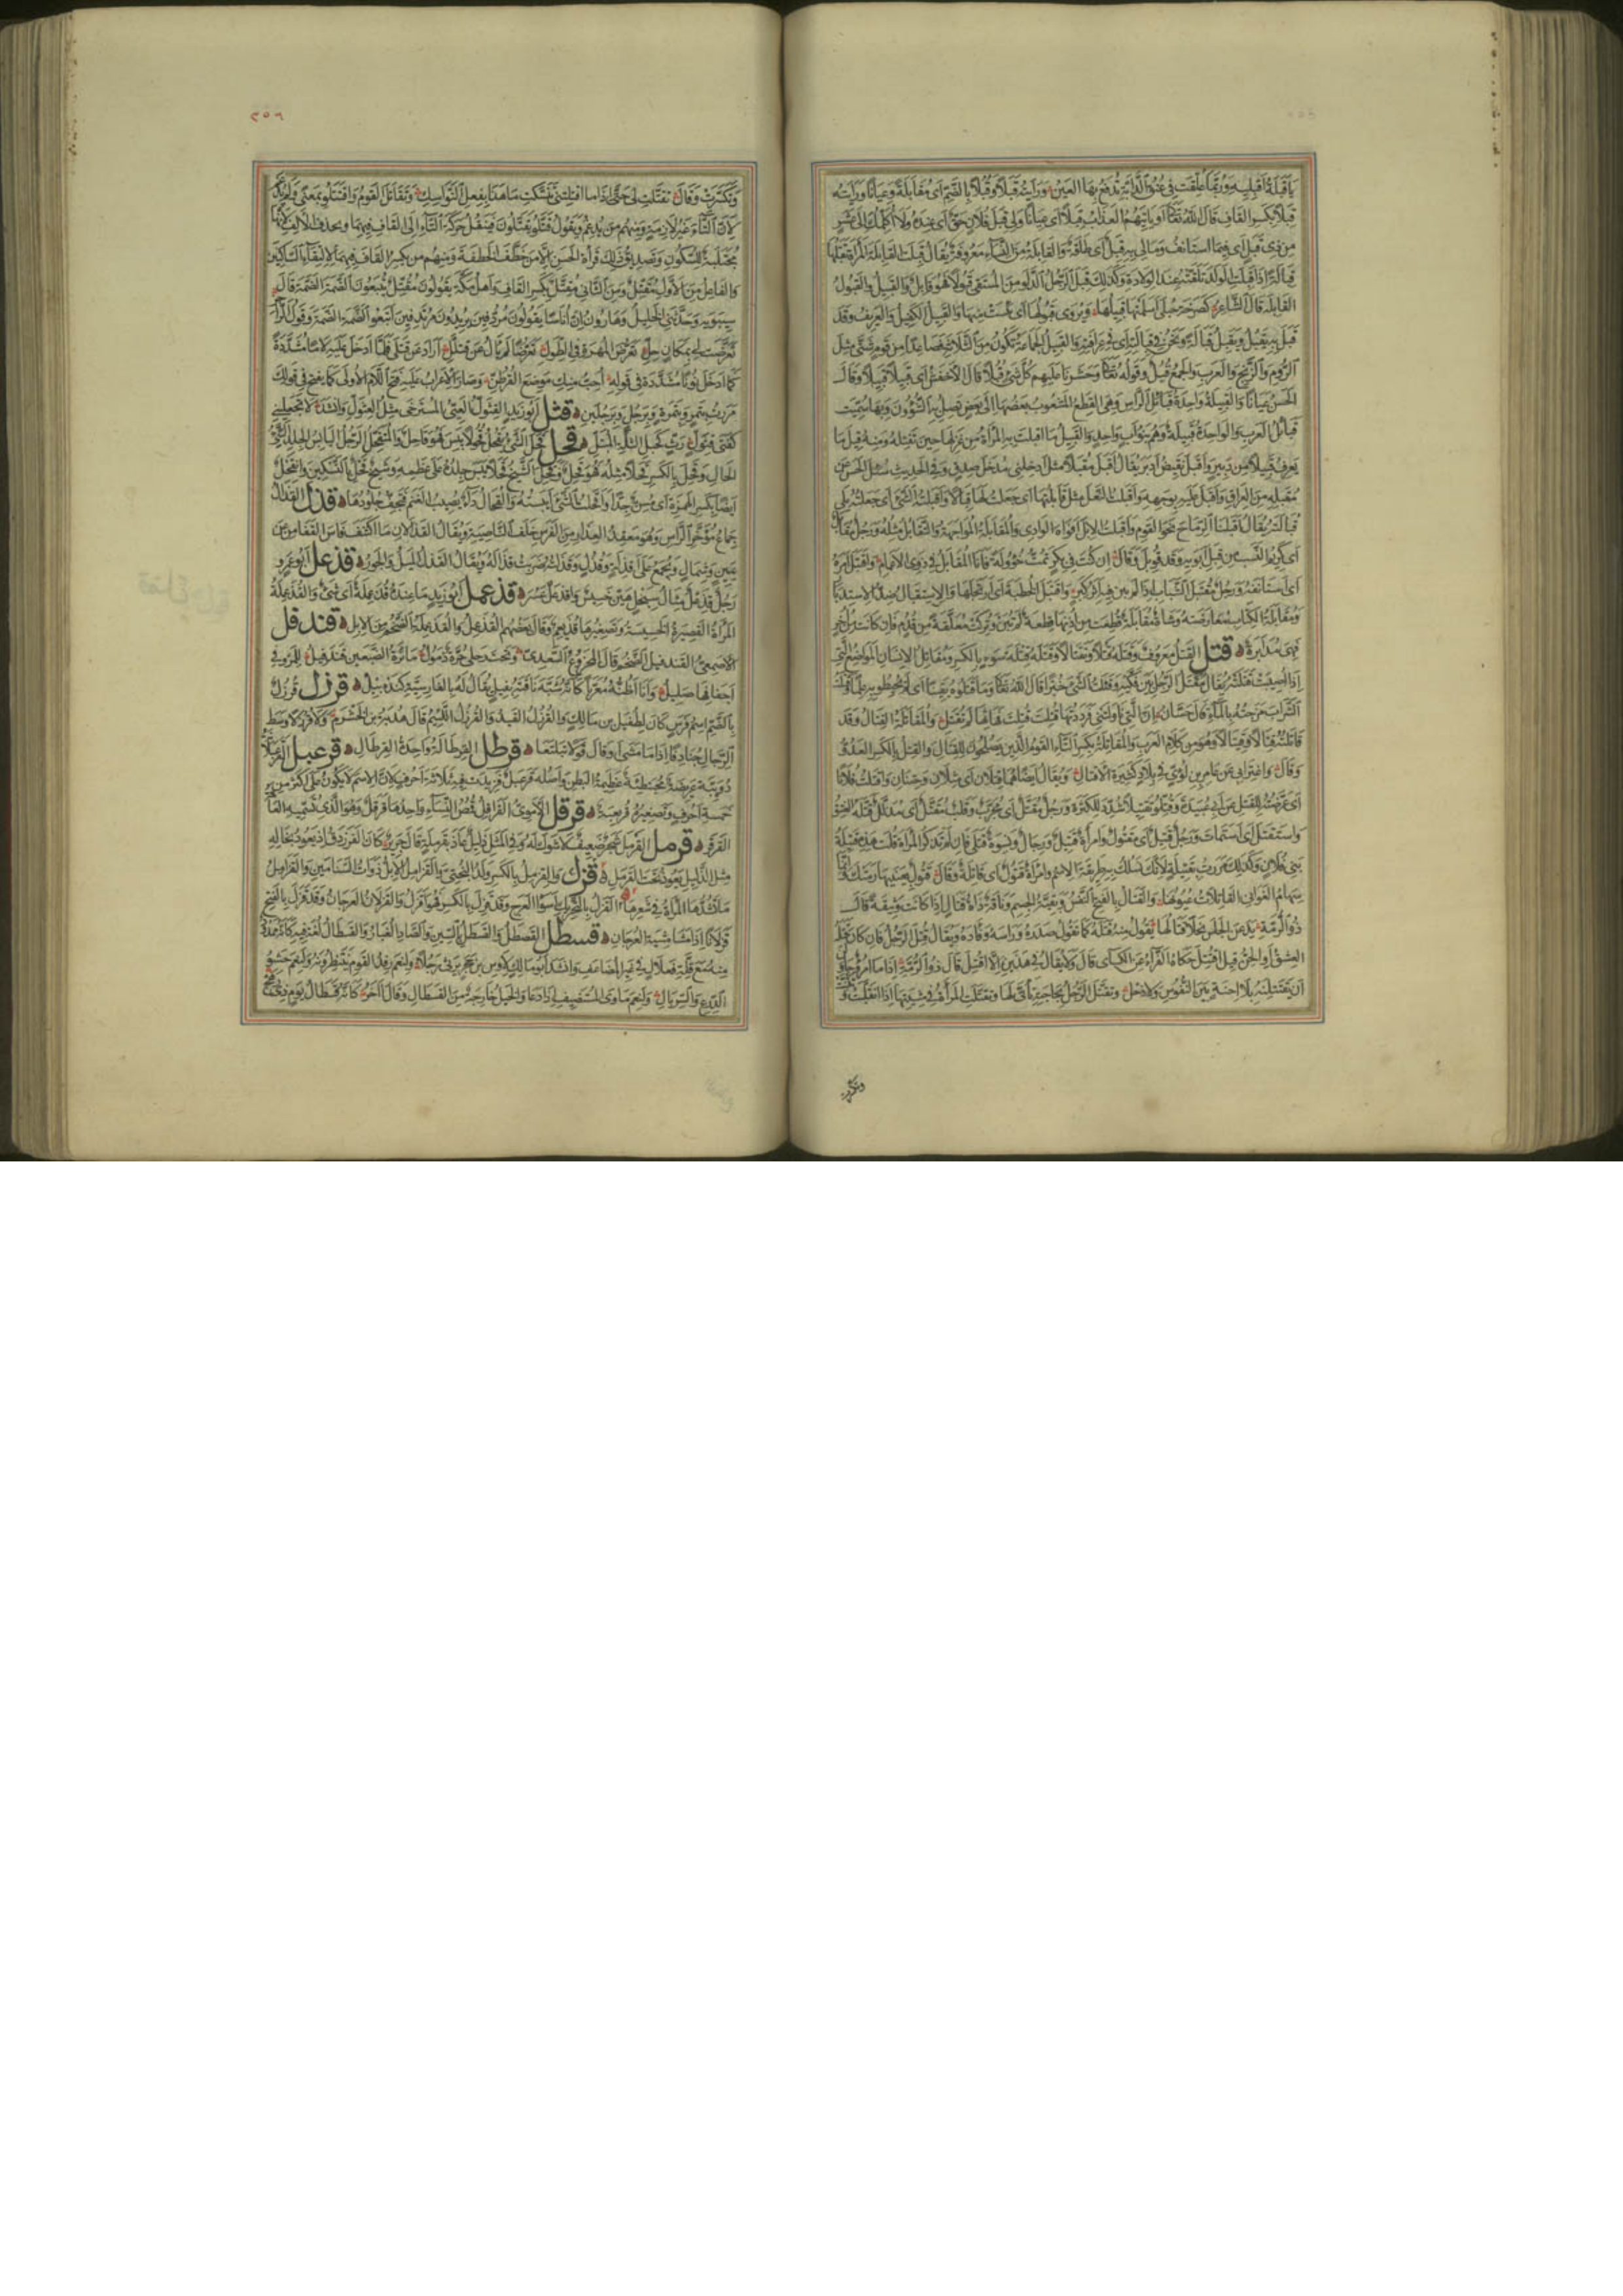 يا قبلة اقبليه وربما علقت في عنق الدابة تدفع بها العين ورأيته قبلا وقبلا بالضم أى مقابلة وعيانا ورأيته
قبلا بكسر القاف قال الله تعالى أو يأتيهم العذاب قبلا أى عيانا ولى قبل فلان حق أى عنده ولا أكلمك إلى عشر
من ذى قبل أى فيما استأنف ومالى به قبل أى طاقة والقابلة من النساء معروفة يقال قبلت القابلة المرأة تقبلها
قبالة إذا قبلت الولد تلقته عند الولادة وكذلك قبل الرجل الدلو من المستقى قبولا فهو قابل والقبيل والقبول
القابلة قال الشاعر كصرخة حبلى أسلمتها قبيلها ويروى قبولها أى يئست منها والقبيل الكفيل والعريف وقد
قبل به يقبل ويقبل قبالة ونحن فى قبالته أى فى عرافته والقبيل الجماعة تكون من الثلاثة فصاعدا من قوم شتى مثل
الروم والزنج والعرب والجمع قبل وقوله تعالى وحشرنا عليهم كل شئ قبلا قال الأخفش أى قبيلا قبيلا وقال
الحسن عيانا والقبيلة واحدة قبائل الرأس وهى القطع المشعوب بعضها إلى بعض تصل بها الشؤون وبها سميت
قبائل العرب والواحدة قبيلة وهم بنو أب واحد والقبيل ما أقبلت به المرأة من غزلها حين تفتله ومنه قيل ما
يعرف قبيلا من دبير وأقبل نقيض أدبر يقال أقبل مقبلا مثل أدخلنى مدخل صدق وفى الحديث سئل الحسن عن
مقبله من العراق وأقبل عليه بوجهه وأقبلت النعل مثل قابلتها أى جعلت لها قبالا وأقبلته الشئ أى جعلته يلى
قبالته يقال أقبلنا الرماح نحو القوم وأقبلت الإبل أفواه الوادى والمقابلة المواجهة والتقابل مثله ورجل مقابل
أى كريم النسب من قبل أبويه وقد قوبل وقال إن كنت فى بكر تمت خؤولة فأنا المقابل فى ذوى الأعمام واقتبل أمره
أى استأنفه ورجل مقتبل الشباب إذا لم يبن فيه أثر كبر واقتبل الخطبة أى ارتجلها والاستقبال ضد الاستدبار
ومقابلة الكتاب معارضته وشاة مقابلة قطعت من أذنها قطعة لم تبن وتركت معلقة من قدم فإن كانت من أخر
فهى مدابرة قتل القتل معروف وقتله قتلا وتقتالا وقتله قتلة سوء بالكسر ومقاتل الإنسان المواضع التى
إذا أصيبت قتلته يقال مقتل الرجل بين فكيه وقتلت الشئ خبرا قال الله تعالى وما قتلوه يقينا أى لم يحيطوا به علما وقتلت
الشراب مزجته بالماء قال حسان إن التى ناولتنى فرددتها قتلت قتلت فهاتها لم تقتل والمقاتلة القتال وقد
قاتلته قتالا وقيتالا وهو من كلام العرب والمقاتلة بكسر التاء القوم الذين يصلحون للقتال والقتل بالكسر العدو
وقال واغترابى عن عامر بن لؤى فى بلاد كثيرة الأقتال ويقال أيضا هما قتلان أى مثلان وحتنان وأقتلت فلانا
أى عرضته للقتل عن أبى عبيدة وقتلوا تقتيلا شدد للكثرة ورجل مقتل أى مجرب وقلب مقتل أى مذلل قتله العشق
واستقتل أى استمات ورجل قتيل أى مقتول وامرأة قتيل ورجال ونسوة قتلى فإن لم تذكر المرأة قلت هذه قتيلة
بنى فلان وكذلك مررت بقتيلة لأنك تسلك به طريقة الاسم وامرأة قتول أى قاتلة وقال قتول بعينيها رمتك وإنما
سهام الغوانى القاتلات عيونها والقتال بالفتح النفس وبقية الجسم وناقة ذات قتال إذا كانت وثيقة قال
ذو الرمة يدعن الجلس نحلا قتالها تقول منه قتله كما تقول صدره ورأسه وفأده ويقال قتل الرجل فإن كان قتله
العشق أو الجن قيل اقتتل حكاه الفراء عن الكسائى قال ولا يقال فى هذين إلا اقتتل قال ذو الرمة إذا ما امرؤ حاولن
أن يقتتلنه بلا إحنة بين النفوس ولا ذحل وتقتل الرجل بحاجته تأتى لها وتقتلت المرأة فى مشيتها إذا تقلبت وتثنت
وتكسرت
٢٥٦
وتكسرت وقال تقتلت لى حتى إذا ما قتلتنى تنسكت ما هذا بفعل النواسك وتقاتل القوم واقتتلوا بمعنى ولم يدغم
لأن التاء غير لازمة ومنهم من يدغم ويقول قتلوا يقتلون فينقل حركة التاء إلى القاف فيهما ويحذف الألف لأنها
مجتلبة للسكون وتصديق ذلك قراءة الحسن إلا من خطف الخطفة ومنهم من يكسر القاف فيهما لالتقاء الساكنين
والفاعل من الأول مقتل ومن الثانى مقتل بكسر القاف وأهل مكة يقولون مقتل يتبعون الضمة الضمة قال
سيبويه وحدثنى الخليل وهارون أن أناسا يقولون مردفين يريدون مرتدفين أتبعوا الضمة الضمة وقول الراجز
تعرضت لى بمكان حل تعرض المهرة فى الطول تعرضا لم تأل عن قتللى أراد عن قتلى فلما أدخل عليه لاما مشددة
كما أدخل نونا مشددة فى قوله أحب منك موضع القرطن وصار الإعراب عليه فتح اللام الأولى كما يفتح فى قولك
مررت بتمر وبتمرة وبرجل وبرجلين قثل أبو زيد القثول العيى المسترخى مثل العثول وأنشد لا تجعلينى
كفتى قثول رث كحبل الثلة المبتل قحل قحل الشئ يقحل قحولا يبس فهو قاحل والمتقحل الرجل اليابس الجلد السيئ
الحال وقحل بالكسر قحلا مثله فهو قحل وقحل الشيخ قحلا يبس جلده على عظمه وشيخ قحل بالتسكين وإنقحل
أيضا بكسر الهمزة أى مسن جدا وأقحلت الشئ أيبسته والقحال داء يصيب الغنم فتجف جلودها قذل القذال
جماع مؤخر الرأس وهو معقد العذار من الفرس خلف الناصية ويقال القذالان ما اكتنف فأس القفا من عن
يمين وشمال ويجمع على أقذلة وقذل وقذلته ضربت قذاله ويقال القذل الميل والجور قذعل أبو عمرو
رجل قذعل مثال سبحل هين خسيس واقذعل عسر قذعمل أبو زيد ما عنده قذعملة أى شئ والقذعملة
المرأة القصيرة الخسيسة وتصغيرها قذيعم وقال بعضهم القذعمل والقذعملة الضخم من الإبل قندفل
الأصمعى القندفيل الضخم قال المخروع السعدى وتحت رحلى حرة ذمول مائرة الضبعين قندفيل للمرو فى
أخفافها صليل وأنا أظنه معربا كأنه شبه ناقته بفيل يقال له بالفارسية كنده پيل قرزل قرزل
بالضم اسم فرس كان لطفيل بن مالك والقرزل القيد والقرزل اللئيم قال هدبة بن الخشرم ولا قرزلا وسط
الرجال جنادفا إذا ما مشى أو قال قولا تبلتعا قرطل القرطالة واحدة القرطال قرعبل القرعبلانة
دويبة عريضة محبنطئة عظيمة البطن وأصله قرعبل فزيدت فيه ثلاثة أحرف لأن الاسم لا يكون على أكثر من
خمسة أحرف وتصغيره قريعبة قرقل الأموى القراقل قمص النساء واحدها قرقل وهو الذى تسميه العامة
القرقر قرمل القرمل شجر ضعيف لا شوك له وفى المثل ذليل عاذ بقرملة قال جرير كان الفرزدق إذ يعوذ بخاله
مثل الذليل يعوذ تحت القرمل والقرمل بالكسر ولد البختى والقرامل الإبل ذوات السنامين والقراميل
ما تشده المرأة فى شعرها قزل القزل بالتحريك أسوأ العرج وقد قزل بالكسر فهو أقزل والقزلان العرجان وقد قزل بالفتح
قزلانا إذا مشى مشية العرجان قسطل القصطل والقسطل بالسين والصاد الغبار والقسطال لغة فيه كأنه ممدود
منه مع قلة فعلال فى غير المضاعف وأنشد أبو مالك لأوس بن حجر يرثى رجلا ولنعم رفد القوم ينتظرونه ولنعم حشو
الدرع والسربال ولنعم مأوى المستضيف إذا دعا والخيل خارجة من القسطال وقال آخر كأنه قسطال يوم ذى رهج